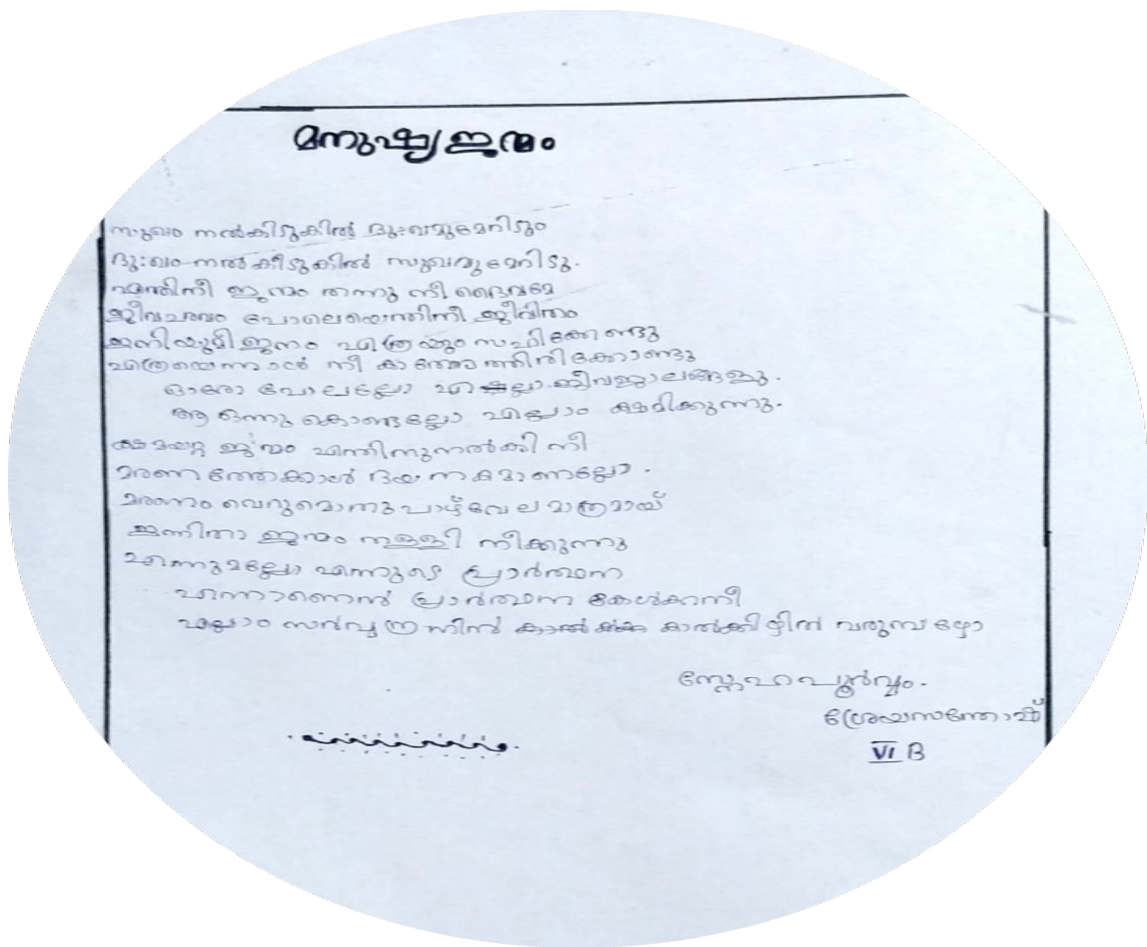 മനുഷ്യജന്മം
സുഖം നൽകിടുകിൽ ദുഃഖമുമേറിടും
ദുഃഖം നൽകീടുകിൽ സുഖവുമേറിടു.
എന്തിനീ ജന്മം തന്നു നീ ദൈവമേ
ജീവചരവം പോലെയെന്തിനീ ജീവിതം
ഇനിയുമീജനം എത്രയും സഹിക്കേണ്ടു
എത്രയെന്നാൽ നീ കാത്തോത്തിരിക്കോണ്ടു
ഓരോ പോലല്ലോ ജീവജാലങ്ങളു.
ആ ഒന്നു കൊണ്ടല്ലോ എല്ലാം ക്ഷമിക്കുന്നു.
ക്ഷമയറ്റ ജന്മം എന്തിനുനൽകി നീ
മരണത്തേക്കാൾ ദയനകമാണല്ലോ.
മരണം വെറുമൊന്നു പാഴ്വേല മാത്രമായ്
ഇന്നിതാ ജന്മം തള്ളി നീക്കുന്നു
എന്നുമല്ലോ എന്നുടെ പ്രാർത്ഥന
എന്നാണെൻ പ്രാർത്ഥന കേൾക്കനീ
എല്ലാം നിൻ കാൽക്കിഴിൽ വരുമ്പഴോ
സ്നേഹപൂർവ്വം.
ശ്രേയസന്തോഷ്
VI B